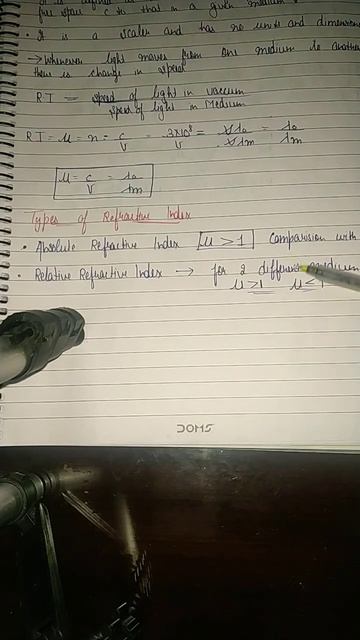 free space c to that in a given medium
• It is a scaler and has no units and dimension
→ Whenever light moves from one medium to another
there is change in speed
RI = speed of light in vaccum
speed of light in Medium
RI = μ = n = c/v = 3×10⁸/v = νλo/νλm = λo/λm
μ = c/v = λo/λm
Types of Refractive Index
• Absolute Refractive Index μ > 1 Comparision with
• Relative Refractive Index → for 2 different medium
μ > 1 μ ≤ 1
DOMS